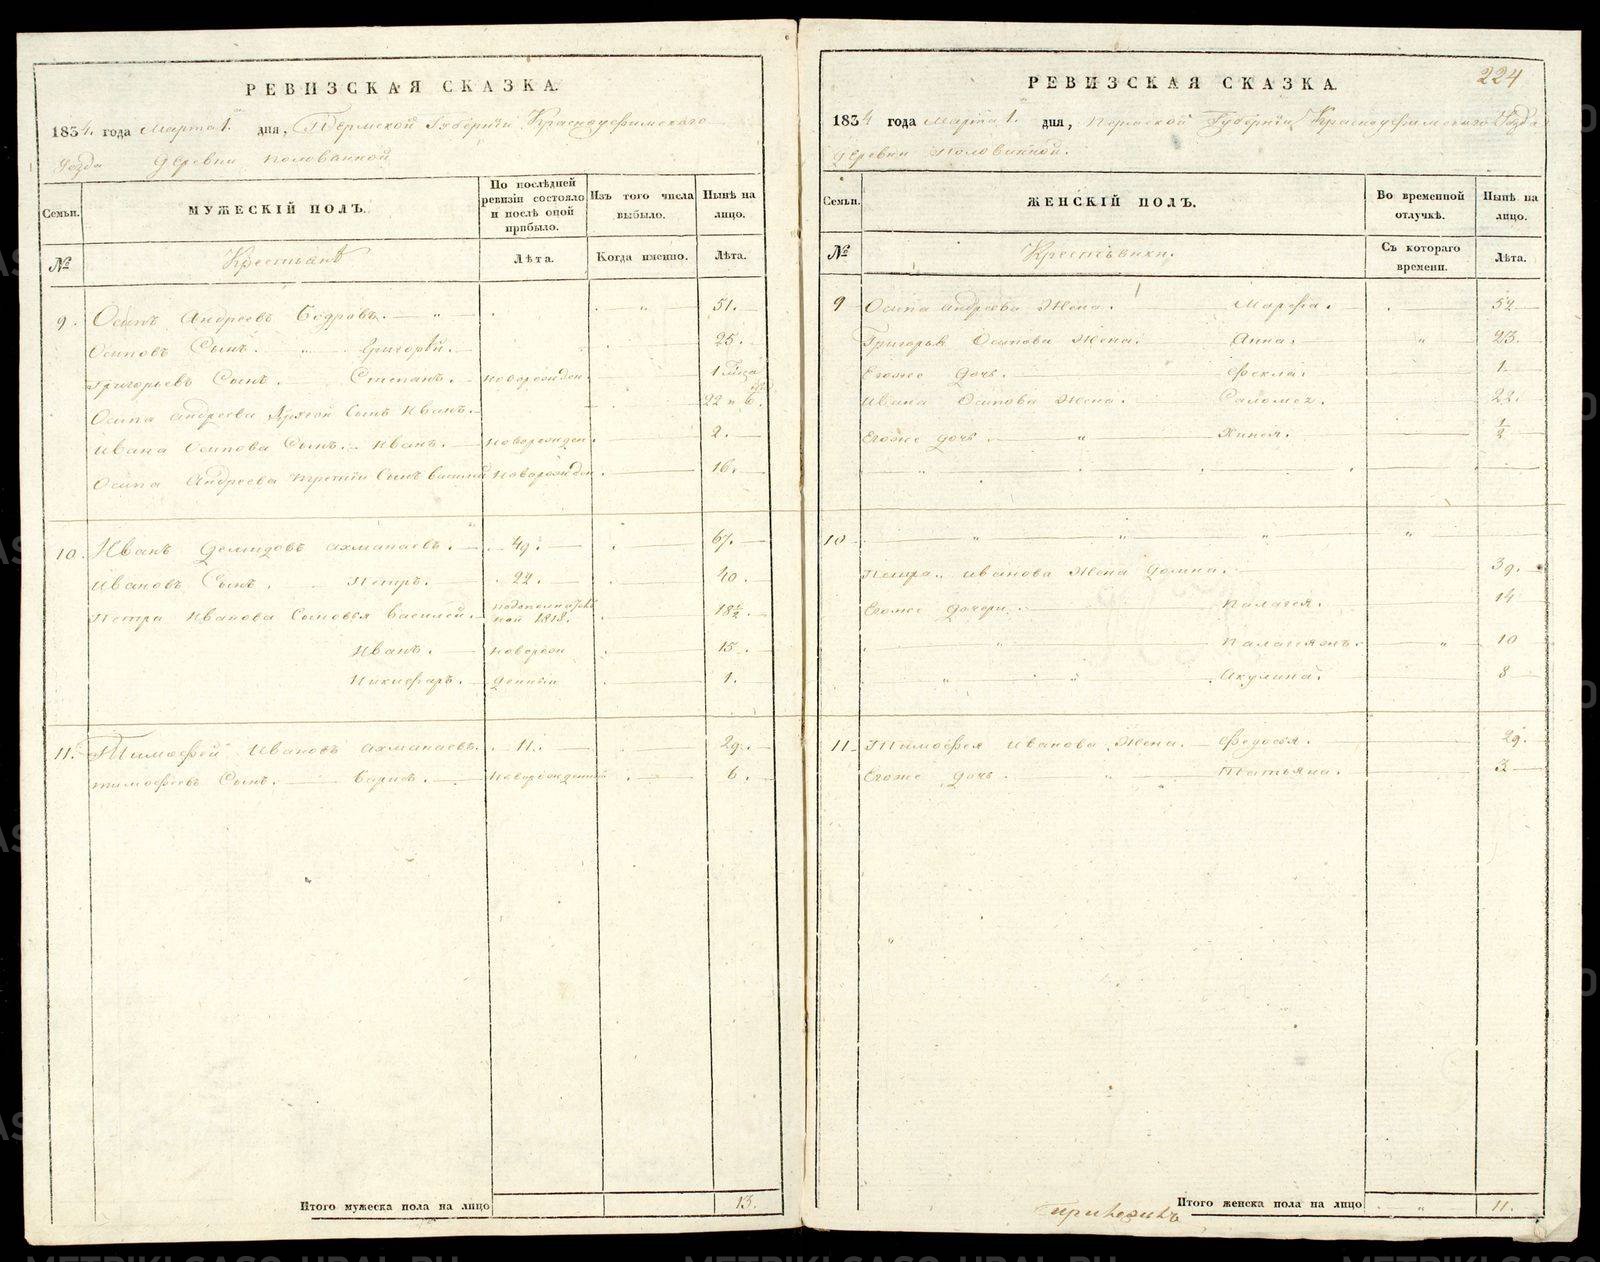 РЕВИЗСКАЯ СКАЗКА.
1834. года Марта 1. дня, Пермской Губернiи Красноуфимского
Уезда Деревни Половинной
Семьи. МУЖЕСКIЙ ПОЛЪ. По послѣдней ревизiи состояло и послѣ оной прибыло. Изъ того числа выбыло. Нынѣ на лицо.
№ Крестьянѣ Лѣта. Когда именно. Лѣта.
9. Осипъ Андреевъ Бодровъ. 51.
Осиповъ Сынъ. Григорѣй. 25.
Григорьевъ Сынъ. Степанъ. новорожден. 1
Осипа Андреева Другой Сынъ Иванъ. 22 и 6.
Ивана Осипова Сынъ. Иванъ. новорожден. 2.
Осипа Андреева третiи Сынъ Василiй новорожден. 16.
10. Иванъ Демидовъ Ахманаевъ. 49. 67.
Ивановъ Сынъ. Петръ. 22. 40.
Петра Иванова Сыновья Василей. 1818. 18½
Иванъ. новорож 15.
Никифаръ. денныи 1.
11. Тимофей Ивановъ Ахманаевъ. 11. 29.
Тимофѣевъ Сынъ. Борисъ. новорожденный 6.
Итого мужеска пола на лицо 13.
224
РЕВИЗСКАЯ СКАЗКА.
1834 года Марта 1. дня, Пермской Губернiи Красноуфимского Уезда
Деревни Половинной.
Семьи. ЖЕНСКIЙ ПОЛЪ. Во временной отлучкѣ. Нынѣ на лицо.
№ Крестьянки. Съ котораго времени. Лѣта.
9 Осипа Андреева Жена. Марфа. 52
Григорья Осипова Жена. Анна. 23.
Егоже дочь. Фекла. 1
Ивана Осипова Жена. Саломея. 22.
Егоже дочь. ½
10
Петра Иванова Жена Домна. 39.
Егоже дочери. Палагея. 14
10
Акулина. 8
11. Тимофея Иванова Жена. Федосья. 29.
Егоже дочь. Татьяна. 3
Итого женска пола на лицо 11.